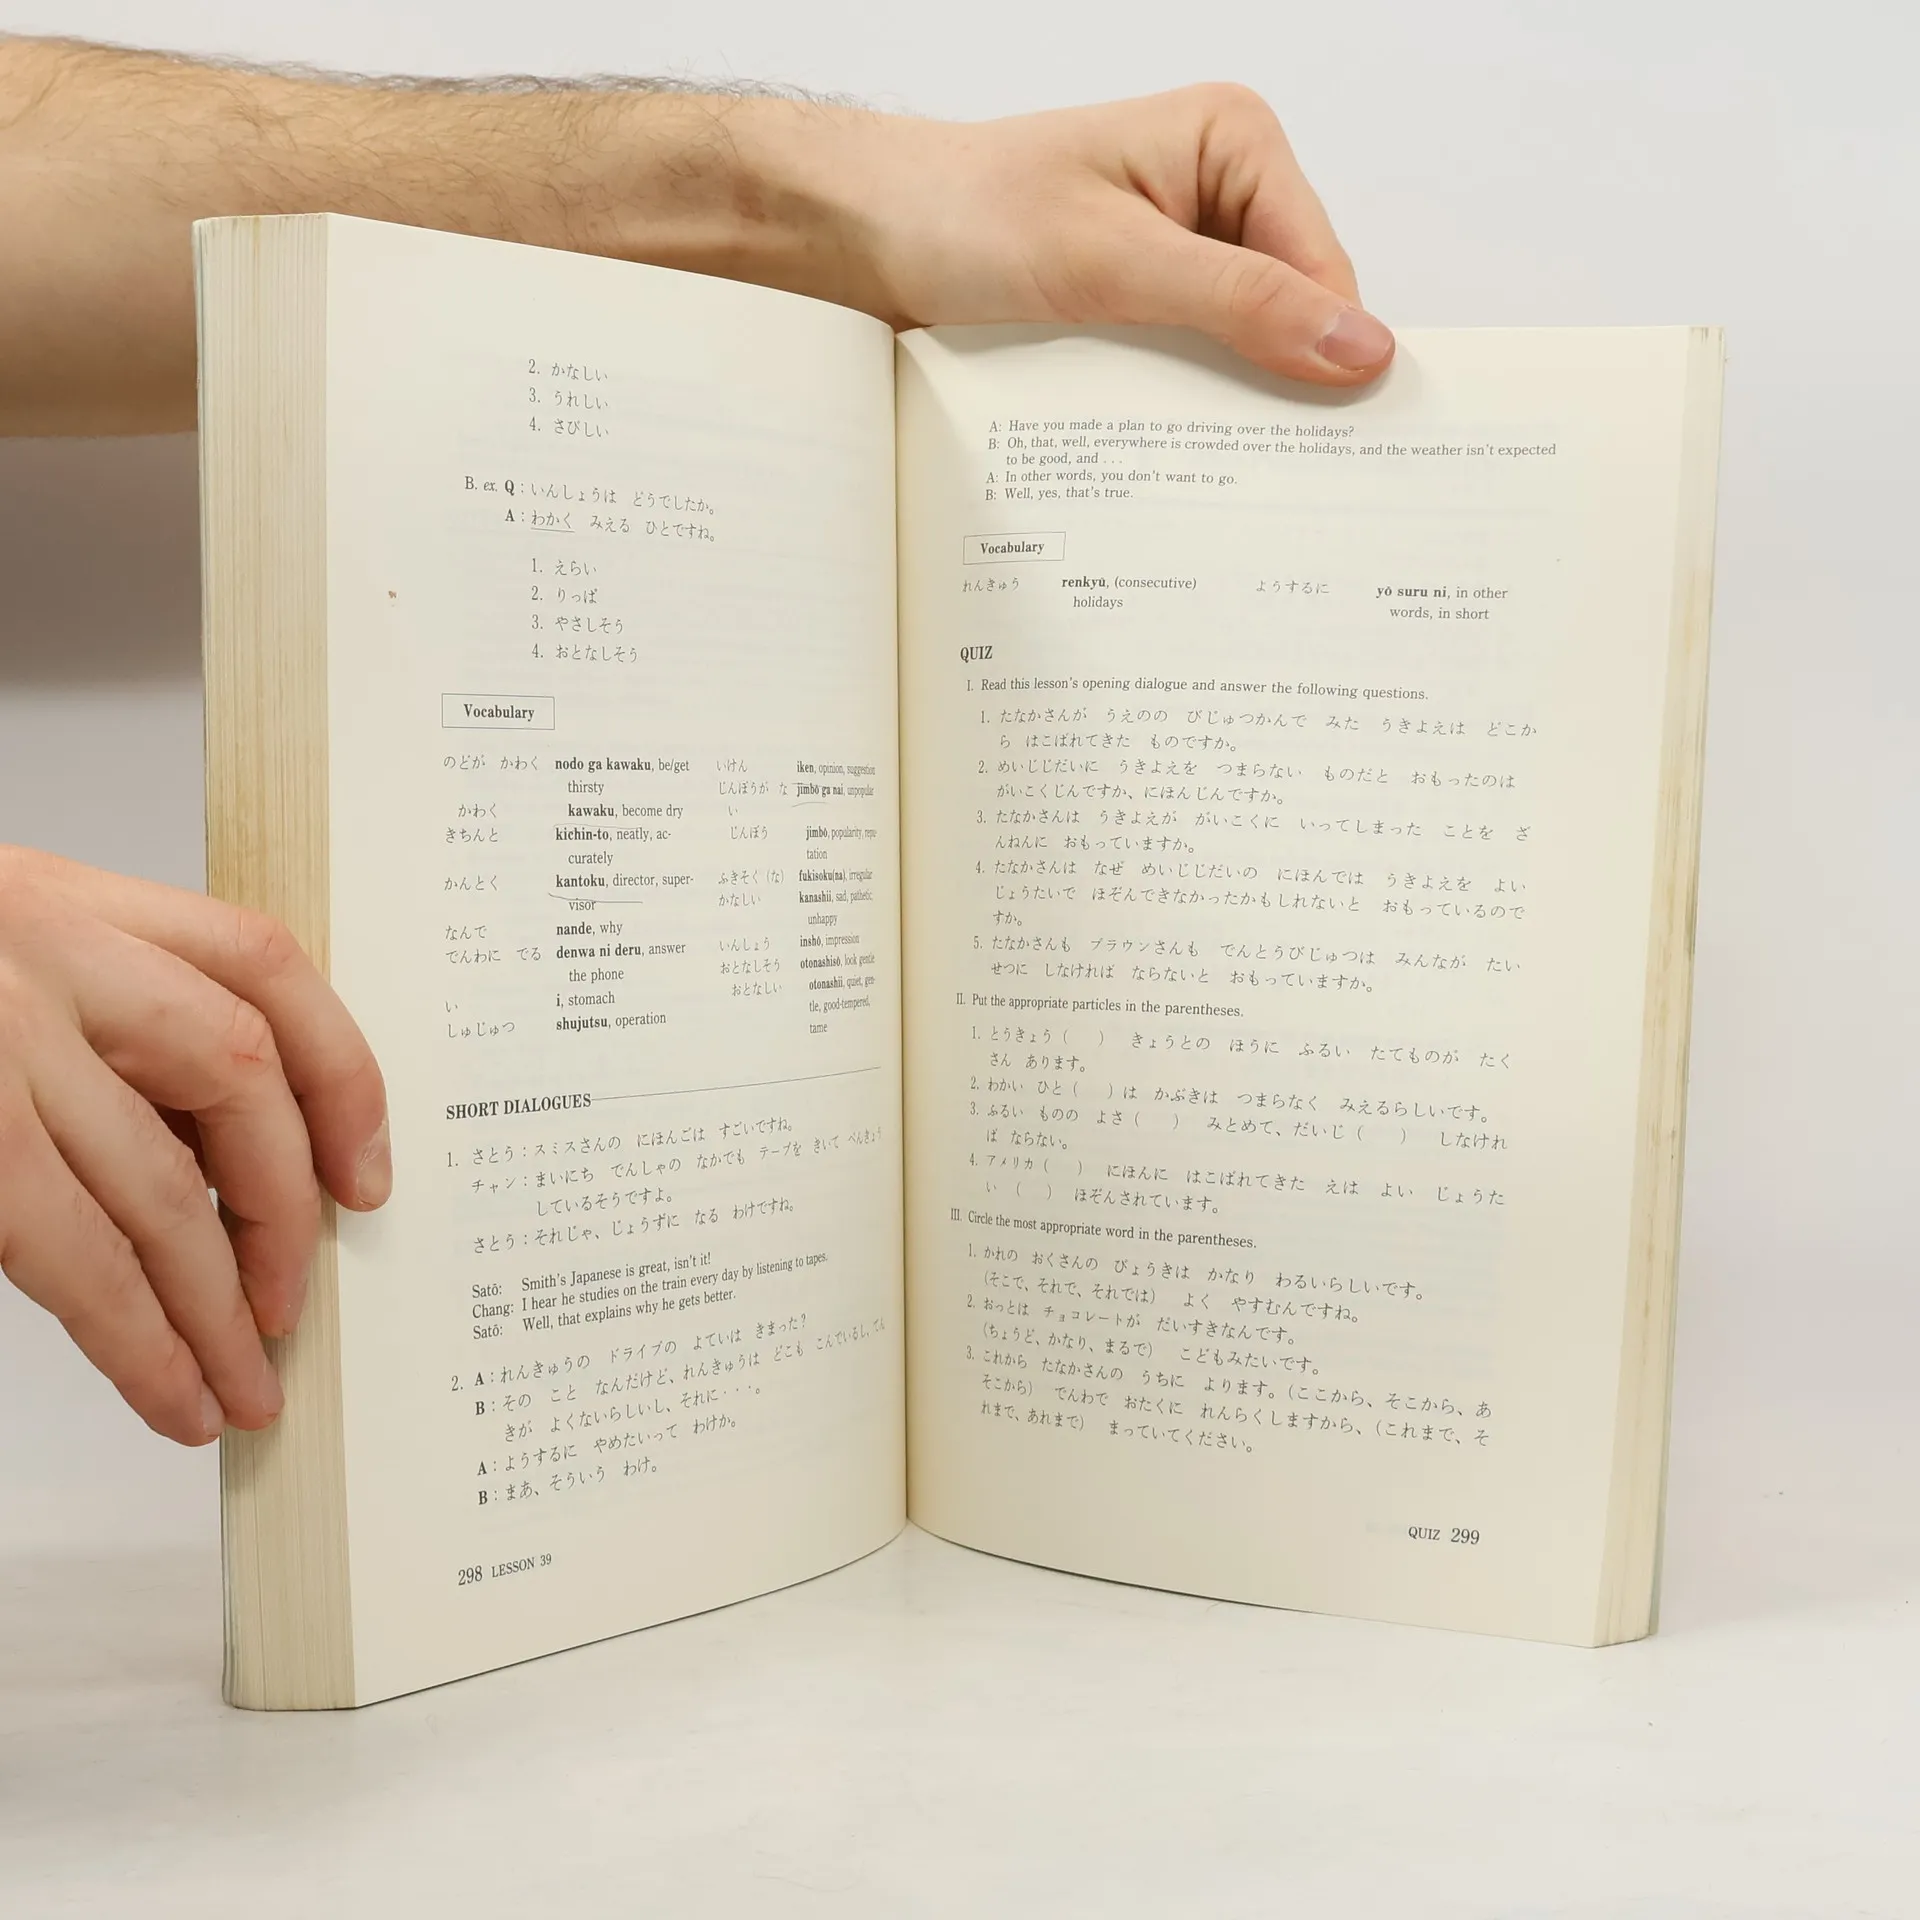 2. かなしい
3. うれしい
4. さびしい
B. ex. Q：いんしょうは　どうでしたか。
A：わかく　みえる　ひとですね。
1. えらい
2. りっぱ
3. やさしそう
4. おとなしそう
Vocabulary
のどが　かわく nodo ga kawaku, be/get
thirsty
かわく kawaku, become dry
きちんと kichin-to, neatly, ac-
curately
かんとく kantoku, director, super-
visor
なんで nande, why
でんわに　でる denwa ni deru, answer
the phone
い i, stomach
しゅじゅつ shujutsu, operation
いけん iken, opinion, suggestion
じんぼうが　な jimbō ga nai, unpopular
い
じんぼう jimbō, popularity, repu-
tation
ふきそく（な） fukisoku(na), irregular
かなしい kanashii, sad, pathetic,
unhappy
いんしょう inshō, impression
おとなしそう otonashisō, look gentle
おとなしい otonashii, quiet, gen-
tle, good-tempered,
tame
SHORT DIALOGUES
1. さとう：スミスさんの　にほんごは　すごいですね。
チャン：まいにち　でんしゃの　なかでも　テープを　きいて　べんきょう
しているそうですよ。
さとう：それじゃ、じょうずに　なる　わけですね。
Satō: Smith's Japanese is great, isn't it!
Chang: I hear he studies on the train every day by listening to tapes.
Satō: Well, that explains why he gets better.
2. A：れんきゅうの　ドライブの　よていは　きまった？
B：その　こと　なんだけど、れんきゅうは　どこも　こんでいるし、てん
きが　よくないらしいし、それに・・・。
A：ようするに　やめたいって　わけか。
B：まあ、そういう　わけ。
298 LESSON 39
A: Have you made a plan to go driving over the holidays?
B: Oh, that, well, everywhere is crowded over the holidays, and the weather isn't expected
to be good, and . . .
A: In other words, you don't want to go.
B: Well, yes, that's true.
Vocabulary
れんきゅう renkyū, (consecutive)
holidays
ようするに yō suru ni, in other
words, in short
QUIZ
I. Read this lesson's opening dialogue and answer the following questions.
1. たなかさんが　うえのの　びじゅつかんで　みた　うきよえは　どこか
ら　はこばれてきた　ものですか。
2. めいじじだいに　うきよえを　つまらない　ものだと　おもったのは
がいこくじんですか、にほんじんですか。
3. たなかさんは　うきよえが　がいこくに　いってしまった　ことを　ざ
んねんに　おもっていますか。
4. たなかさんは　なぜ　めいじじだいの　にほんでは　うきよえを　よい
じょうたいで　ほぞんできなかったかもしれないと　おもっているので
すか。
5. たなかさんも　ブラウンさんも　でんとうびじゅつは　みんなが　たい
せつに　しなければ　ならないと　おもっていますか。
II. Put the appropriate particles in the parentheses.
1. とうきょう（　）　きょうとの　ほうに　ふるい　たてものが　たく
さん　あります。
2. わかい　ひと（　）は　かぶきは　つまらなく　みえるらしいです。
3. ふるい　ものの　よさ（　）　みとめて、だいじ（　）　しなけれ
ば　ならない。
4. アメリカ（　）　にほんに　はこばれてきた　えは　よい　じょうた
い（　）　ほぞんされています。
III. Circle the most appropriate word in the parentheses.
1. かれの　おくさんの　びょうきは　かなり　わるいらしいです。
（そこで、それで、それでは）　よく　やすむんですね。
2. おっとは　チョコレートが　だいすきなんです。
（ちょうど、かなり、まるで）　こどもみたいです。
3. これから　たなかさんの　うちに　よります。（ここから、そこから、あ
そこから）　でんわで　おたくに　れんらくしますから、（これまで、そ
れまで、あれまで）　まっていてください。
QUIZ 299